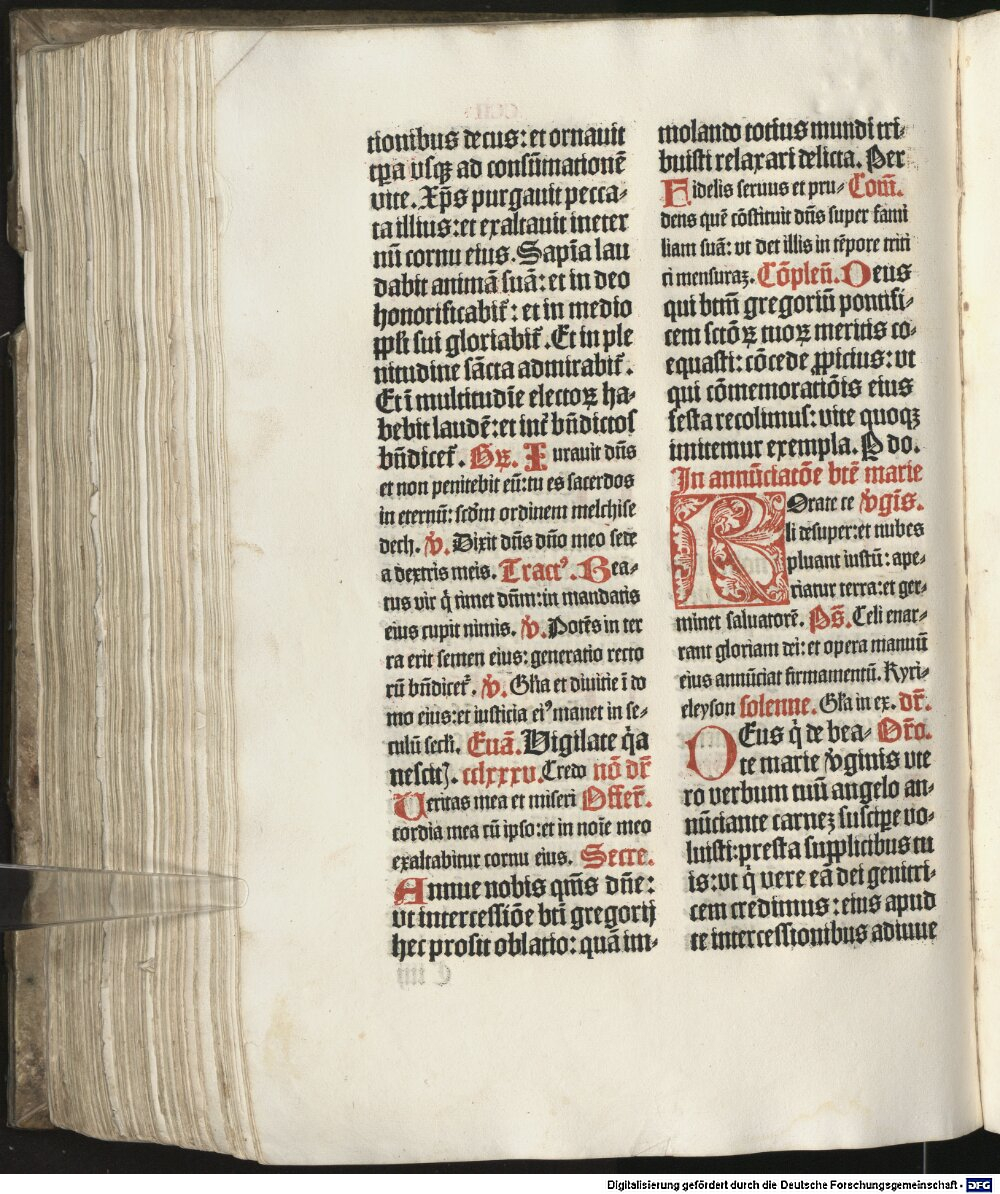 tionibus decus: et ornauit
tp̄a vsqꝫ ad consūmationē
vite. Xp̄s purgauit pecca-
ta illius: et exaltauit ineter
nū cornu eius. Sapīa lau
dabit animā suā: et in deo
honorificabiť: et in medio
ppłi sui gloriabiť. Et in ple
nitudine sācta admirabiť.
Et ī multitudīe electoꝝ ha-
bebit laudē: et int̄ bn̄dictos
bn̄diceť. Gꝝ. Iurauit dn̄s
et non penitebit eū: tu es sacerdos
in eternū: scdm̄ ordinem melchise
dech. v̄. Dixit dn̄s dn̄o meo sede
a dextris meis. Tractꝰ. Bea-
tus vir q̇ timet dn̄m: in mandatis
eius cupit nimis. v̄. Potēs in ter
ra erit semen eius: generatio recto
rū bn̄diceť. v̄. Gła et diuitie ī do
mo eius: et iusticia eiꝰ manet in se-
culū secłi. Euā. Vigilate q̇a
nescitꝭ. cclxxxv. Credo nō dr̄
Ueritas mea et miseri Offer̄.
cordia mea cū ipso: et in noīe meo
exaltabitur cornu eius. Secre.
Annue nobis qm̄s dn̄e:
vt intercessiōe bti̅ gregorij
hec prosit oblatio: quā im-
molando totius mundi tri-
buisti relaxari delicta. Per
Fidelis seruus et pru- Com̄.
dens quē cōstituit dn̄s super fami
liam suā: vt det illis in tēpore triti
ci mensuraꝫ. Cōpleñ. Deus
qui btm̄ gregoriū pontifi-
cem sctōꝝ tuoꝝ meritis co-
equasti: cōcede ꝓpicius: vt
qui cōmemoratiōis eius
festa recolimus: vite quoqꝫ
imitemur exempla. P do.
In annūciatōe btē marie
Rorate ce v̄gīs.
li desuper: et nubes
pluant iustū: ape-
riatur terra: et ger-
minet saluatorē. Ps̄. Celi enar-
rant gloriam dei: et opera manuū
eius annūciat firmamentū. Kyri-
eleyson solenne. Gła in ex. dr̄.
DEus q̇ de bea- Or̄o.
te marie v̄ginis vte
ro verbum tuū angelo an-
nūciante carneꝫ suscipe vo-
luisti: presta supplicibus tu
is: vt q̇ vere eā dei genitri-
cem credimus: eius apud
te intercessionibus adiuue
Digitalisierung gefördert durch die Deutsche Forschungsgemeinschaft - DFG